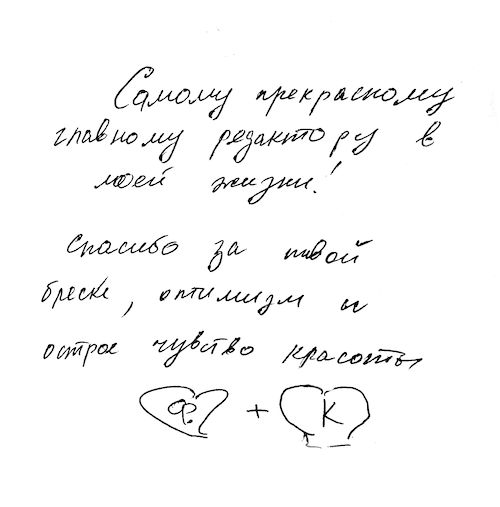 Самому прекрасному
главному редактору в
моей жизни!
Спасибо за твой
блеск, оптимизм и
острое чувство красоты
Ф. + К